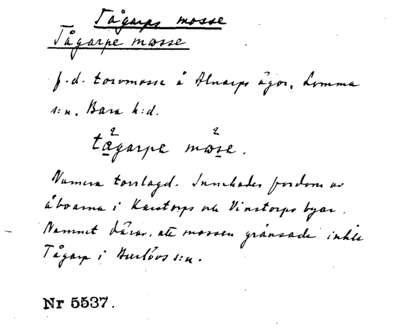 Tågarps mosse
Tågarpe mosse
f.d. torvmosse å Alnarps ägor, Lomma
s:n. Bara h:d.
tågarpe mose.
Numera torrlagd. Innehades fordom av
åboarna i Karstorps och Vinstorps byar.
Namnet därav, att mossen gränsade intill
Tågarp i Burlövs s:n.
Nr 5537.